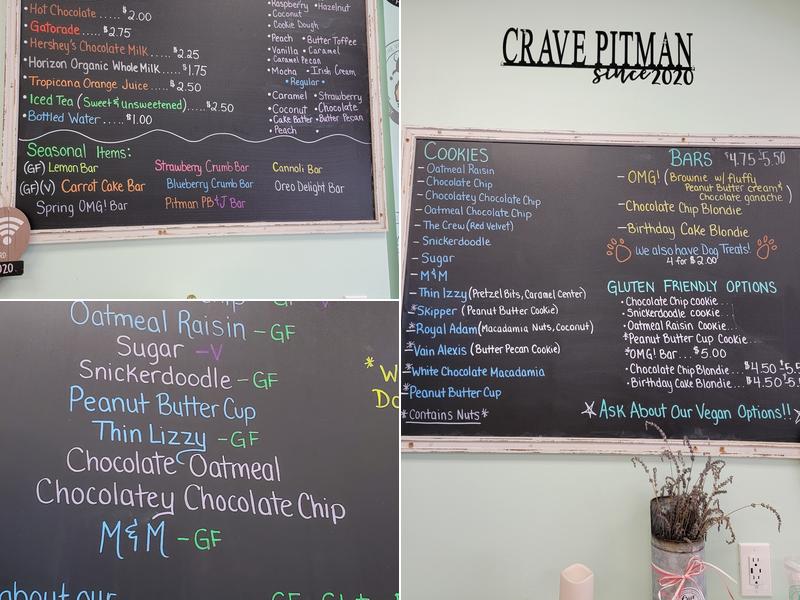 Hot Chocolate ..... $2.00
Gatorade ..... $2.75
Hershey's Chocolate Milk .... $2.25
Horizon Organic Whole Milk .... $1.75
Tropicana Orange Juice .... $2.50
Iced Tea (Sweet & unsweetened) ..... $2.50
Bottled Water ..... $1.00
•Raspberry •Hazelnut
•Coconut
•Cookie Dough
•Peach •Butter Toffee
•Vanilla •Caramel
•Caramel Pecan
•Mocha •Irish Cream
•Regular•
•Caramel •Strawberry
•Coconut •Chocolate
•Cake Batter •Butter Pecan
•Peach
Seasonal Items:
(GF) Lemon Bar Strawberry Crumb Bar Cannoli Bar
(GF)(V) Carrot Cake Bar Blueberry Crumb Bar Oreo Delight Bar
Spring OMG! Bar Pitman PB&J Bar
2020
Oatmeal Raisin - GF
Sugar - V
Snickerdoodle - GF
Peanut Butter Cup
Thin Lizzy - GF
Chocolate Oatmeal
Chocolatey Chocolate Chip
M&M - GF
about our
CRAVE PITMAN
since 2020
COOKIES
- Oatmeal Raisin
- Chocolate Chip
- Chocolatey Chocolate Chip
- Oatmeal Chocolate Chip
- The Crew (Red Velvet)
- Snickerdoodle
- Sugar
- M&M
- Thin Lizzy (Pretzel Bits, Caramel Center)
*Skipper (Peanut Butter Cookie)
*Royal Adam (Macadamia Nuts, Coconut)
*Vain Alexis (Butter Pecan Cookie)
*White Chocolate Macadamia
*Peanut Butter Cup
*Contains Nuts*
BARS $4.75-5.50
- OMG! (Brownie w/ fluffy
Peanut Butter cream &
Chocolate ganache)
- Chocolate Chip Blondie
- Birthday Cake Blondie
we also have Dog Treats!
4 for $2.00
GLUTEN FRIENDLY OPTIONS
•Chocolate Chip cookie...
•Snickerdoodle cookie...
•Oatmeal Raisin Cookie...
*Peanut Butter Cup Cookie...
*OMG! Bar... $5.00
•Chocolate Chip Blondie... $4.50
•Birthday Cake Blondie... $4.50
Ask About Our Vegan Options!!